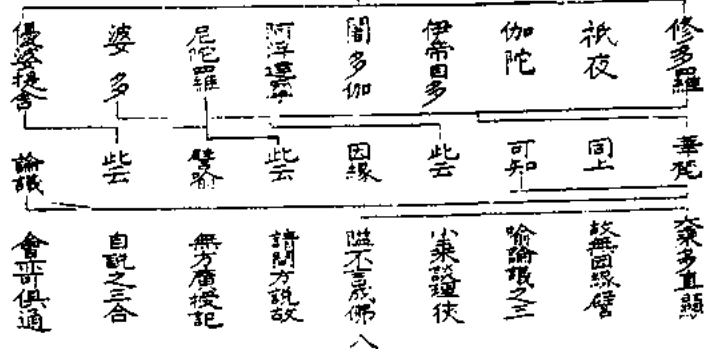 修多羅
祇夜
伽陀
伊帝目多
闍多伽
阿浮達摩
尼陀羅
婆多
優婆提舍
華梵
同上
可知
此云
因緣
此云
譬喻
此云
論議
大乘多直顯
故無因緣譬
喻論議之三
小乘談理狹
隘不言成佛
請問方說故
無方廣授記
自說之三合
會亦俱通
八